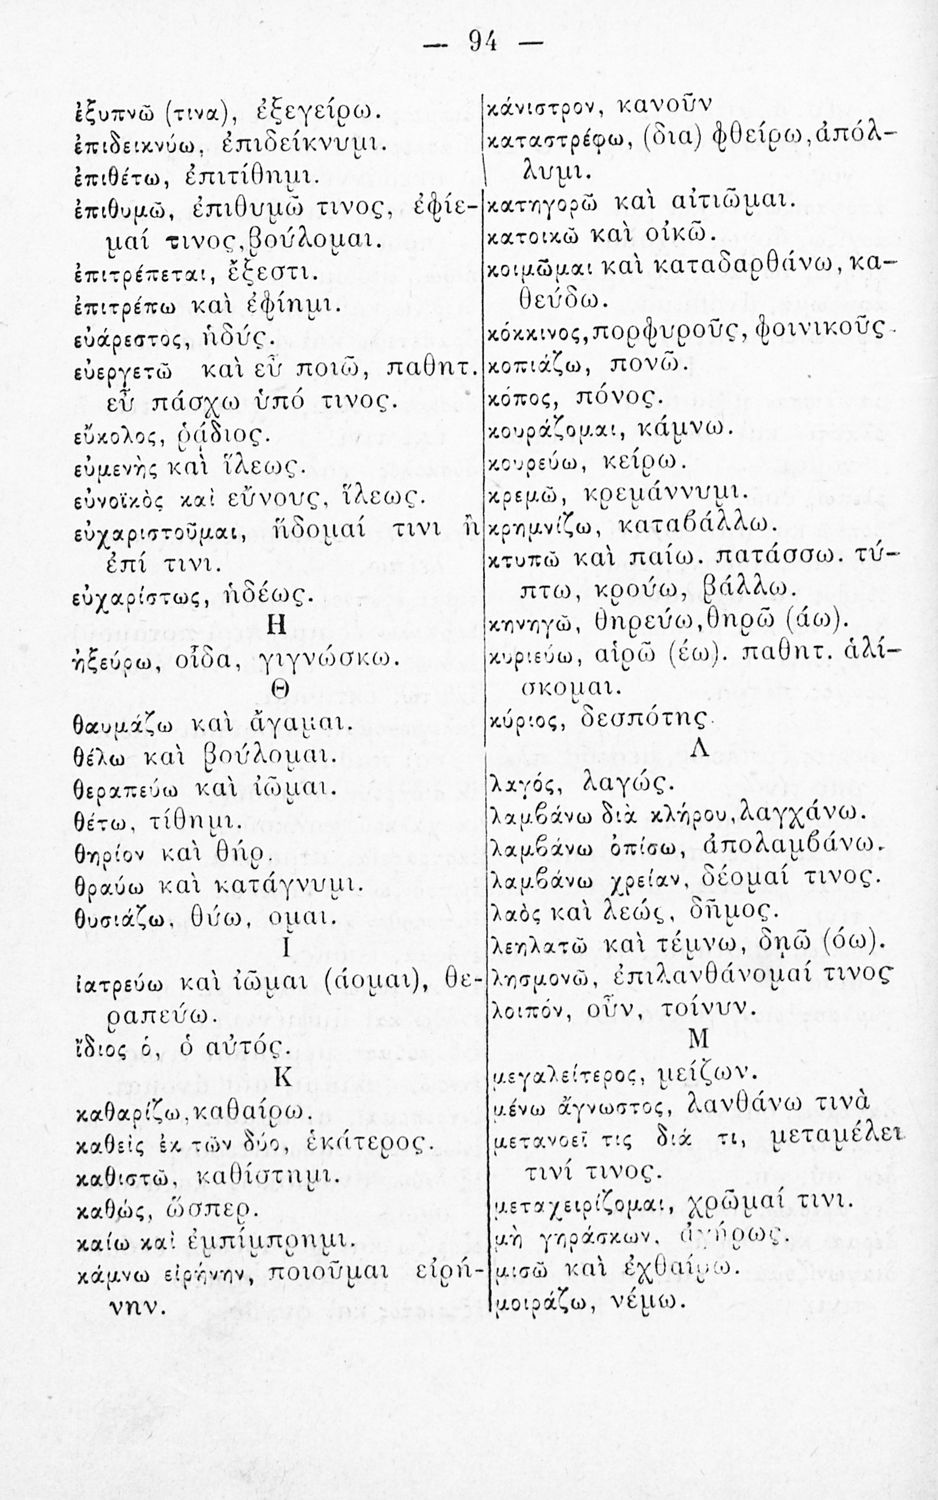 — 94 —
ἐξυπνῶ (τινα), ἐξεγείρω.
ἐπιδεικνύω, ἐπιδείκνυμι.
ἐπιθέτω, ἐπιτίθημι.
ἐπιθυμῶ, ἐπιθυμῶ τινος, ἐφίε-
μαί τινος, βούλομαι.
ἐπιτρέπεται, ἔξεστι.
ἐπιτρέπω καὶ ἐφίημι.
εὐάρεστος, ἡδύς.
εὐεργετῶ καὶ εὖ ποιῶ, παθητ.
εὖ πάσχω ὑπό τινος.
εὔκολος, ῥᾴδιος.
εὐμενὴς καὶ ἵλεως.
εὐνοϊκὸς καὶ εὔνους, ἵλεως.
εὐχαριστοῦμαι, ἥδομαί τινι ἢ
ἐπί τινι.
εὐχαρίστως, ἡδέως.
Η
ἠξεύρω, οἶδα, γιγνώσκω.
Θ
θαυμάζω καὶ ἄγαμαι.
θέλω καὶ βούλομαι.
θεραπεύω καὶ ἰῶμαι.
θέτω, τίθημι.
θηρίον καὶ θήρ.
θραύω καὶ κατάγνυμι.
θυσιάζω, θύω, ομαι.
Ι
ἰατρεύω καὶ ἰῶμαι (άομαι), θε-
ραπεύω.
ἴδιος ὁ, ὁ αὐτός.
Κ
καθαρίζω, καθαίρω.
καθεὶς ἐκ τῶν δύο, ἑκάτερος.
καθιστῶ, καθίστημι.
καθώς, ὥσπερ.
καίω καὶ ἐμπίμπρημι.
κάμνω εἰρήνην, ποιοῦμαι εἰρή-
νην.
κάνιστρον, κανοῦν
καταστρέφω, (δια) φθείρω, ἀπόλ-
λυμι.
κατηγορῶ καὶ αἰτιῶμαι.
κατοικῶ καὶ οἰκῶ.
κοιμῶμαι καὶ καταδαρθάνω, κα-
θεύδω.
κόκκινος, πορφυροῦς, φοινικοῦς.
κοπιάζω, πονῶ.
κόπος, πόνος.
κουράζομαι, κάμνω.
κουρεύω, κείρω.
κρεμῶ, κρεμάννυμι.
κρημνίζω, καταβάλλω.
κτυπῶ καὶ παίω. πατάσσω. τύ-
πτω, κρούω, βάλλω.
κηνηγῶ, θηρεύω, θηρῶ (άω).
κυριεύω, αἱρῶ (έω). παθητ. ἁλί-
σκομαι.
κύριος, δεσπότης.
Λ
λαγός, λαγώς.
λαμβάνω διὰ κλήρου, λαγχάνω.
λαμβάνω ὀπίσω, ἀπολαμβάνω.
λαμβάνω χρείαν, δέομαί τινος.
λαὸς καὶ λεώς, δῆμος.
λεηλατῶ καὶ τέμνω, δῃῶ (όω).
λησμονῶ, ἐπιλανθάνομαί τινος
λοιπόν, οὖν, τοίνυν.
Μ
μεγαλείτερος, μείζων.
μένω ἄγνωστος, λανθάνω τινὰ
μετανοεῖ τις διά τι, μεταμέλει
τινί τινος.
μεταχειρίζομαι, χρῶμαί τινι.
μὴ γηράσκων, ἀγήρως.
μισῶ καὶ ἐχθαίρω.
μοιράζω, νέμω.